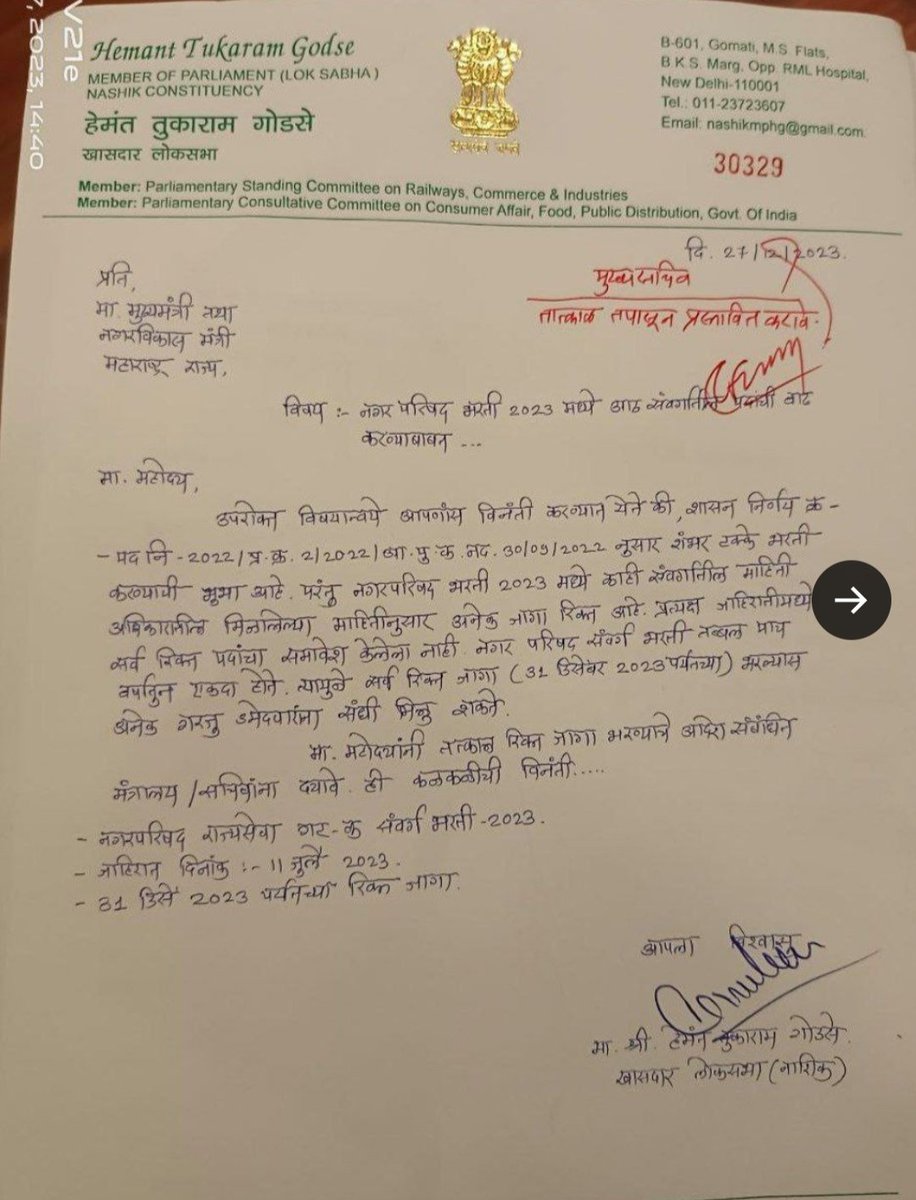 V21e
7, 2023, 14:40
Hemant Tukaram Godse
MEMBER OF PARLIAMENT (LOK SABHA)
NASHIK CONSTITUENCY
हेमंत तुकाराम गोडसे
खासदार लोकसभा
सत्यमेव जयते
B-601, Gomati, M.S. Flats,
B.K.S. Marg, Opp. RML Hospital,
New Delhi-110001
Tel.: 011-23723607
Email: nashikmphg@gmail.com
30329
Member: Parliamentary Standing Committee on Railways, Commerce & Industries
Member: Parliamentary Consultative Committee on Consumer Affair, Food, Public Distribution, Govt. Of India
दि. 27/12/2023.
मुख्यसचिव
तात्काळ तपासून प्रस्तावित करावे.
प्रति,
मा. मुख्यमंत्री तथा
नगरविकास मंत्री
महाराष्ट्र राज्य,
विषय :- नगर परिषद भरती 2023 मध्ये आठ संवर्गातील पदांची वाढ
करण्याबाबत ...
मा. महोदय,
उपरोक्त विषयान्वये आपणांस विनंती करण्यात येते की, शासन निर्णय क्र -
- पद नि - 2022/प्र.क्र. 2/2022/आ.पु.क. नुसार शंभर टक्के भरती
करण्याची मुभा आहे. परंतु नगरपरिषद भरती 2023 मध्ये काही संवर्गातील माहिती
अधिकारातील मिळालेल्या माहितीनुसार अनेक जागा रिक्त आहे. प्रत्यक्ष जाहिरातीमध्ये
सर्व रिक्त पदांचा समावेश केलेला नाही. नगर परिषद संवर्ग भरती तब्बल पाच
वर्षातुन एकदा होते. त्यामुळे सर्व रिक्त जागा (31 डिसेंबर 2023 पर्यंतच्या) भरल्यास
अनेक गरजु उमेदवारांना संधी मिळु शकते.
मा. महोदयांनी तत्काळ रिक्त जागा भरण्याचे आदेश संबंधित
मंत्रालय /सचिवांना द्यावे. ही कळकळीची विनंती.....
- नगरपरिषद राज्यसेवा गट-क संवर्ग भरती-2023.
- जाहिरात दिनांक :- 11 जुलै 2023.
- 31 डिसें 2023 पर्यंतच्या रिक्त जागा.
आपला विश्वासु
मा. श्री. हेमंत तुकाराम गोडसे.
खासदार लोकसभा (नाशिक)